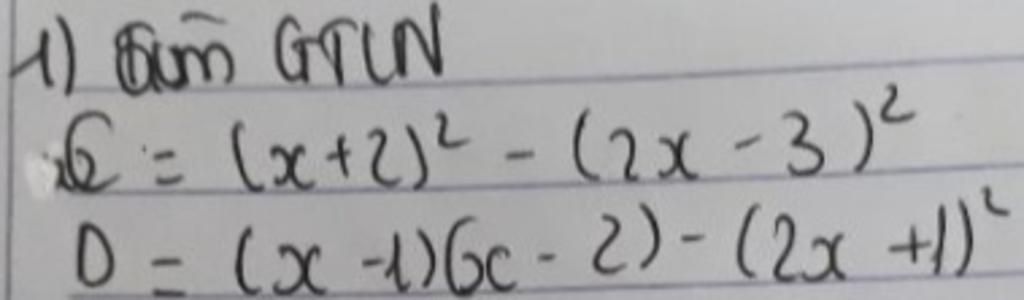 1) Tìm GTLN
C = (x+2)² - (2x - 3)²
D = (x - 1)(x - 2) - (2x + 1)²